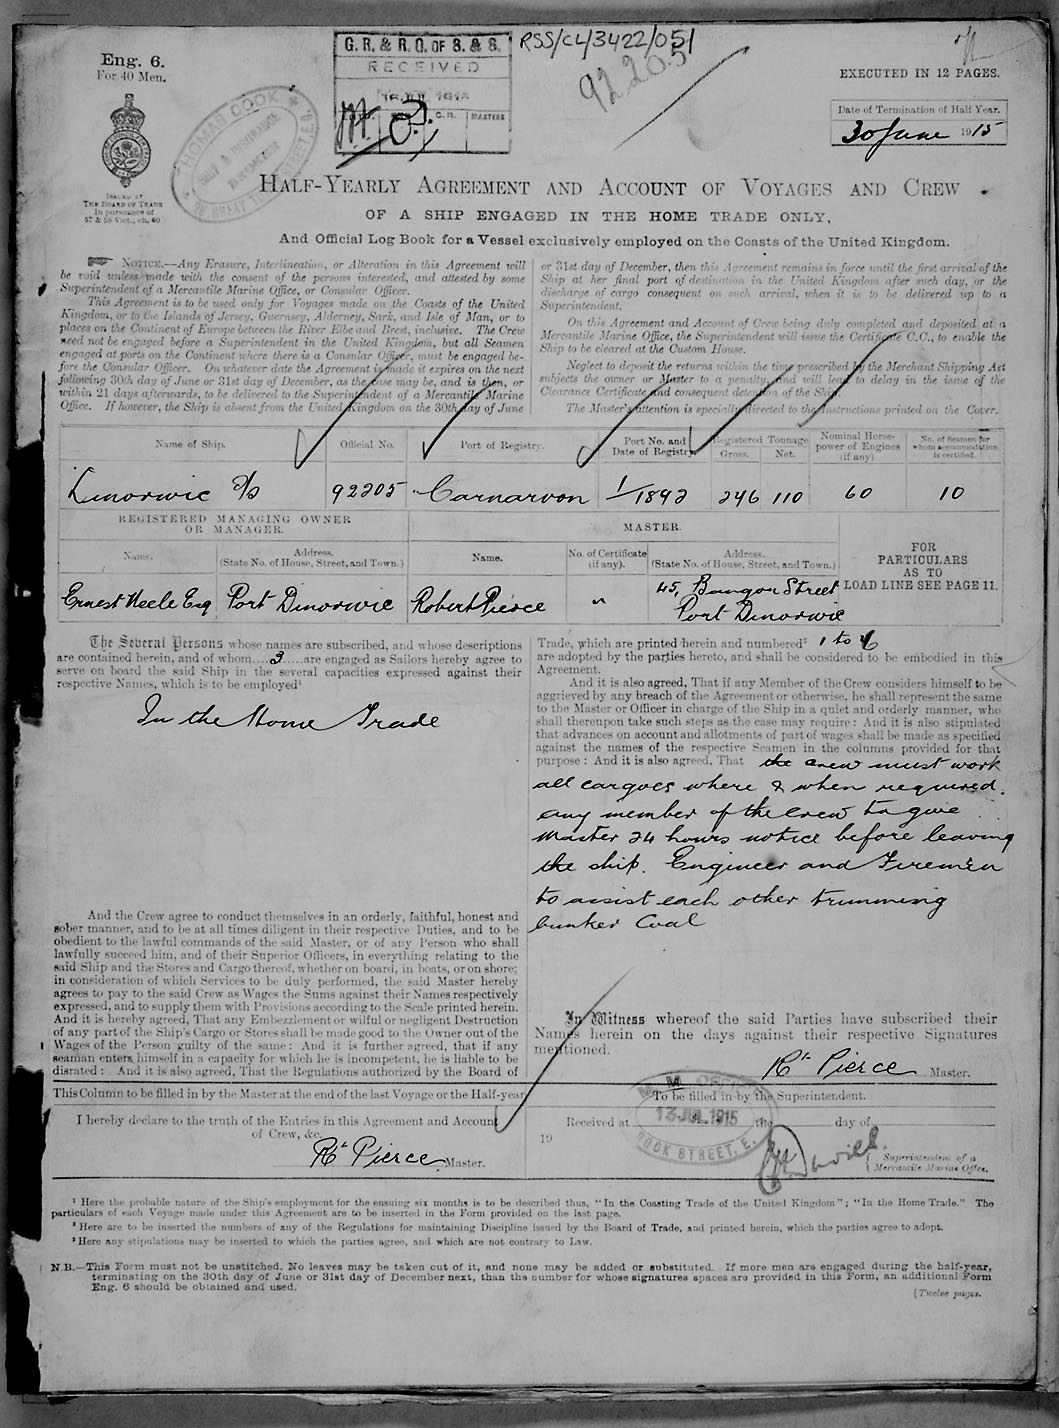 Eng. 6.
For 40 Men.
ISSUED BY
THE BOARD OF TRADE
In pursuance of
57 & 58 Vict., ch. 60
THOMAS COOK
SHIP & INSURANCE
G. R. & R. O. OF S. & S.
RECEIVED
C. R.
MASTERS
RSS/CL/3422/051
92205
EXECUTED IN 12 PAGES.
Date of Termination of Half Year.
30 June 1915
HALF-YEARLY AGREEMENT AND ACCOUNT OF VOYAGES AND CREW
OF A SHIP ENGAGED IN THE HOME TRADE ONLY,
And Official Log Book for a Vessel exclusively employed on the Coasts of the United Kingdom.
NOTICE.—Any Erasure, Interlineation, or Alteration in this Agreement will
be void unless made with the consent of the persons interested, and attested by some
Superintendent of a Mercantile Marine Office, or Consular Officer.
This Agreement is to be used only for Voyages made on the Coasts of the United
Kingdom, or to the Islands of Jersey, Guernsey, Alderney, Sark, and Isle of Man, or to
places on the Continent of Europe between the River Elbe and Brest, inclusive. The Crew
need not be engaged before a Superintendent in the United Kingdom, but all Seamen
engaged at ports on the Continent where there is a Consular Officer, must be engaged be-
fore the Consular Officer. On whatever date the Agreement is made it expires on the next
following 30th day of June or 31st day of December, as the case may be, and is then, or
within 21 days afterwards, to be delivered to the Superintendent of a Mercantile Marine
Office. If however, the Ship is absent from the United Kingdom on the 30th day of June
or 31st day of December, then this Agreement remains in force until the first arrival of the
Ship at her final port of destination in the United Kingdom after such day, or the
discharge of cargo consequent on such arrival, when it is to be delivered up to a
Superintendent.
On this Agreement and Account of Crew being duly completed and deposited at a
Mercantile Marine Office, the Superintendent will issue the Certificate C.C., to enable the
Ship to be cleared at the Custom House.
Neglect to deposit the returns within the time prescribed by the Merchant Shipping Act
subjects the owner or Master to a penalty, and will lead to delay in the issue of the
Clearance Certificate and consequent detention of the Ship.
The Master's attention is specially directed to the Instructions printed on the Cover.
Name of Ship.
Official No.
Port of Registry.
Port No. and
Date of Registry.
Registered Tonnage
Gross.
Net.
Nominal Horse-
power of Engines
(if any)
No. of Seamen for
whom accommodation
is certified.
Dinorwic S/S
92205
Carnarvon
1/1892
246
110
60
10
REGISTERED MANAGING OWNER
OR MANAGER.
MASTER.
Name.
Address.
(State No. of House, Street, and Town.)
Name.
No. of Certificate
(if any).
Address.
(State No. of House, Street, and Town.)
FOR
PARTICULARS
AS TO
LOAD LINE SEE PAGE 11.
Ernest Neele Esq
Port Dinorwic
Robert Pierce
45, Bangor Street
Port Dinorwic
The Several Persons whose names are subscribed, and whose descriptions
are contained herein, and of whom 3 are engaged as Sailors hereby agree to
serve on board the said Ship in the several capacities expressed against their
respective Names, which is to be employed¹
In the Home Trade
And the Crew agree to conduct themselves in an orderly, faithful, honest and
sober manner, and to be at all times diligent in their respective Duties, and to be
obedient to the lawful commands of the said Master, or of any Person who shall
lawfully succeed him, and of their Superior Officers, in everything relating to the
said Ship and the Stores and Cargo thereof, whether on board, in boats, or on shore;
in consideration of which Services to be duly performed, the said Master hereby
agrees to pay to the said Crew as Wages the Sums against their Names respectively
expressed, and to supply them with Provisions according to the Scale printed herein.
And it is hereby agreed, That any Embezzlement or wilful or negligent Destruction
of any part of the Ship's Cargo or Stores shall be made good to the Owner out of the
Wages of the Person guilty of the same: And it is further agreed, that if any
seaman enters himself in a capacity for which he is incompetent, he is liable to be
disrated: And it is also agreed, That the Regulations authorized by the Board of
Trade, which are printed herein and numbered² 1 to 6
are adopted by the parties hereto, and shall be considered to be embodied in this
Agreement.
And it is also agreed, That if any Member of the Crew considers himself to be
aggrieved by any breach of the Agreement or otherwise, he shall represent the same
to the Master or Officer in charge of the Ship in a quiet and orderly manner, who
shall thereupon take such steps as the case may require: And it is also stipulated
that advances on account and allotments of part of wages shall be made as specified
against the names of the respective Seamen in the columns provided for that
purpose: And it is also agreed, That the crew must work
all cargoes where & when required.
any member of the crew to give
master 24 hours notice before leaving
the ship. Engineer and Firemen
to assist each other trimming
bunker Coal
In Witness whereof the said Parties have subscribed their
Names herein on the days against their respective Signatures
mentioned.
Rt Pierce Master.
This Column to be filled in by the Master at the end of the last Voyage or the Half-year
I hereby declare to the truth of the Entries in this Agreement and Account
of Crew, &c.
Rt Pierce Master.
To be filled in by the Superintendent.
Received at
the
day of
19
M. M. OFFICE
13 JUL 1915
DOCK STREET, E.
Superintendent of a
Mercantile Marine Office.
¹ Here the probable nature of the Ship's employment for the ensuing six months is to be described thus, "In the Coasting Trade of the United Kingdom"; "In the Home Trade." The
particulars of each Voyage made under this Agreement are to be inserted in the Form provided on the last page.
² Here are to be inserted the numbers of any of the Regulations for maintaining Discipline issued by the Board of Trade, and printed herein, which the parties agree to adopt.
³ Here any stipulations may be inserted to which the parties agree, and which are not contrary to Law.
N.B.—This Form must not be unstitched. No leaves may be taken out of it, and none may be added or substituted. If more men are engaged during the half-year,
terminating on the 30th day of June or 31st day of December next, than the number for whose signatures spaces are provided in this Form, an additional Form
Eng. 6 should be obtained and used.
[Twelve pages.